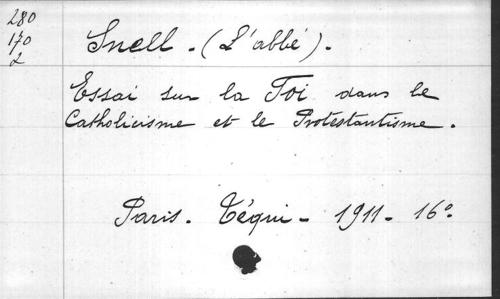 280
170
2
Snell. (L'abbé).
Essai sur la Foi dans le
Catholicisme et le Protestantisme.
Paris. Téqui - 1911 - 16°